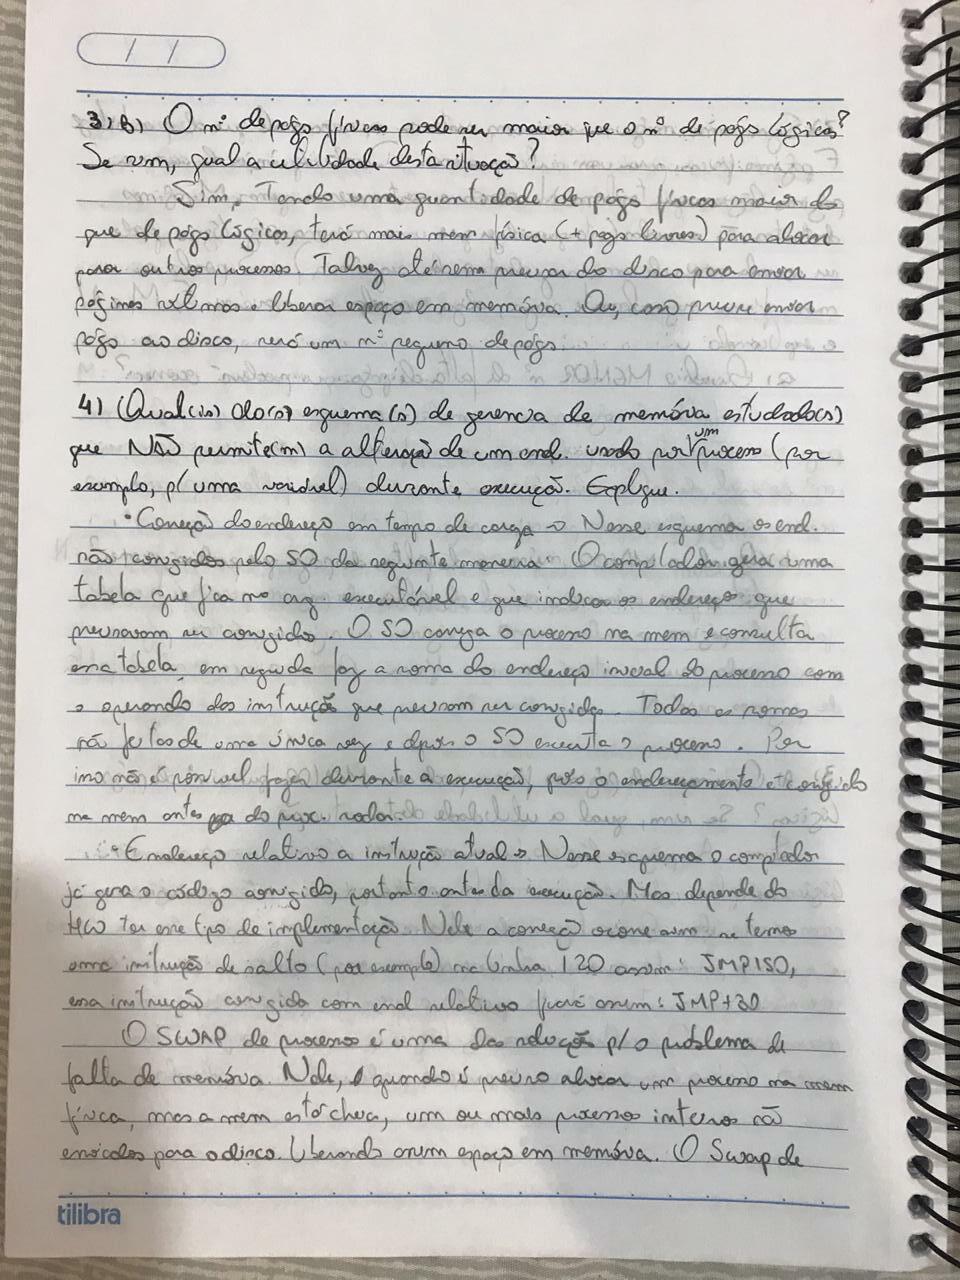 / /
3) b) O nº de págs físicas pode ser maior que o nº de págs lógicas?
Se sim, qual a utilidade desta situação?
Sim. Tendo uma quantidade de págs físicas maior do
que de págs lógicas, terá mais mem física (+ págs livres) para alocar
para outros processos. Talvez até nem precisa do disco para enviar
páginas e liberar espaço em memória. Ou, caso precise enviar
págs ao disco, será um nº pequeno de págs.
4) (Qual(is) do(s) esquema(s) de gerencia de memória estudado(s)
um
que NÃO permite(m) a alteração de um end. usado por processo (por
exemplo, p/ uma variável) durante execução. Explique.
• Correção do endereço em tempo de carga → Nesse esquema os end.
são corrigidos pelo SO da seguinte maneira: O compilador gera uma
tabela que fica no arq. executável e que indica os endereços que
precisaram ser corrigidos. O SO carrega o processo na mem e consulta
essa tabela, em seguida faz a soma do endereço inicial do processo com
o operando das instruções que precisam ser corrigidas. Todas as somas
são feitas de uma única vez e depois o SO executa o processo. Por
isso não é possível fazer durante a execução, pois o endereçamento é corrigido
na mem antes do proc. rodar.
• Endereço relativo a instrução atual → Nesse esquema o compilador
já gera o código corrigido, portanto antes da execução. Mas depende do
HW ter esse tipo de implementação. Nele a correção ocorre assim: se temos
uma instrução de salto (por exemplo) na linha 120 assim: JMP 150,
essa instrução corrigida com end relativo ficará assim: JMP+30
O SWAP de processos é uma das soluções p/ o problema de
falta de memória. Nele, quando é preciso alocar um processo na mem
física, mas a mem está cheia, um ou mais processos inteiros são
enviados para o disco. Liberando assim espaço em memória. O Swap de
tilibra